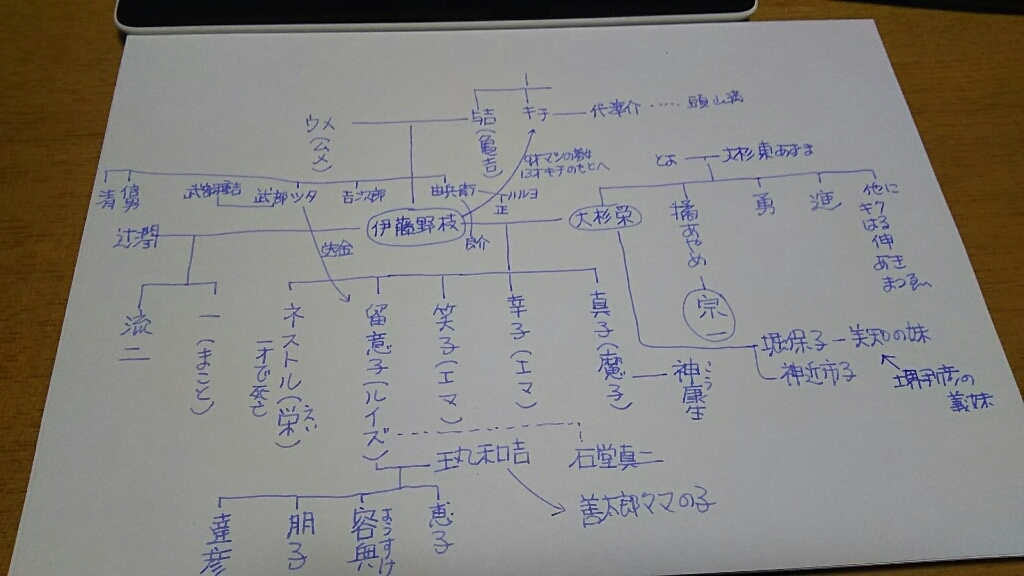 ウメ
(ムメ)
与吉(亀吉)
キチ
代準介 …… 頭山満
とよ
大杉東あずま
清
武部ツタ
吉次郎
由兵衛
ハルヨ
正
良介
辻潤
伊藤野枝
大杉栄
橘あやめ
勇
進
他に
キク
はる伸
あき
まつゑへ
宗一
流二
一(まこと)
ネストル(栄)えい
一才で死亡
留意子(ルイズ)
笑子(エマ)
幸子(エマ)
真子(魔子)
神康生
こう
堀保子
の妹
神近市子
堺利彦の
義妹
王丸和吉
石堂真二
善太郎ママの子
達彦
朋子
容典
ようすけ
恵子